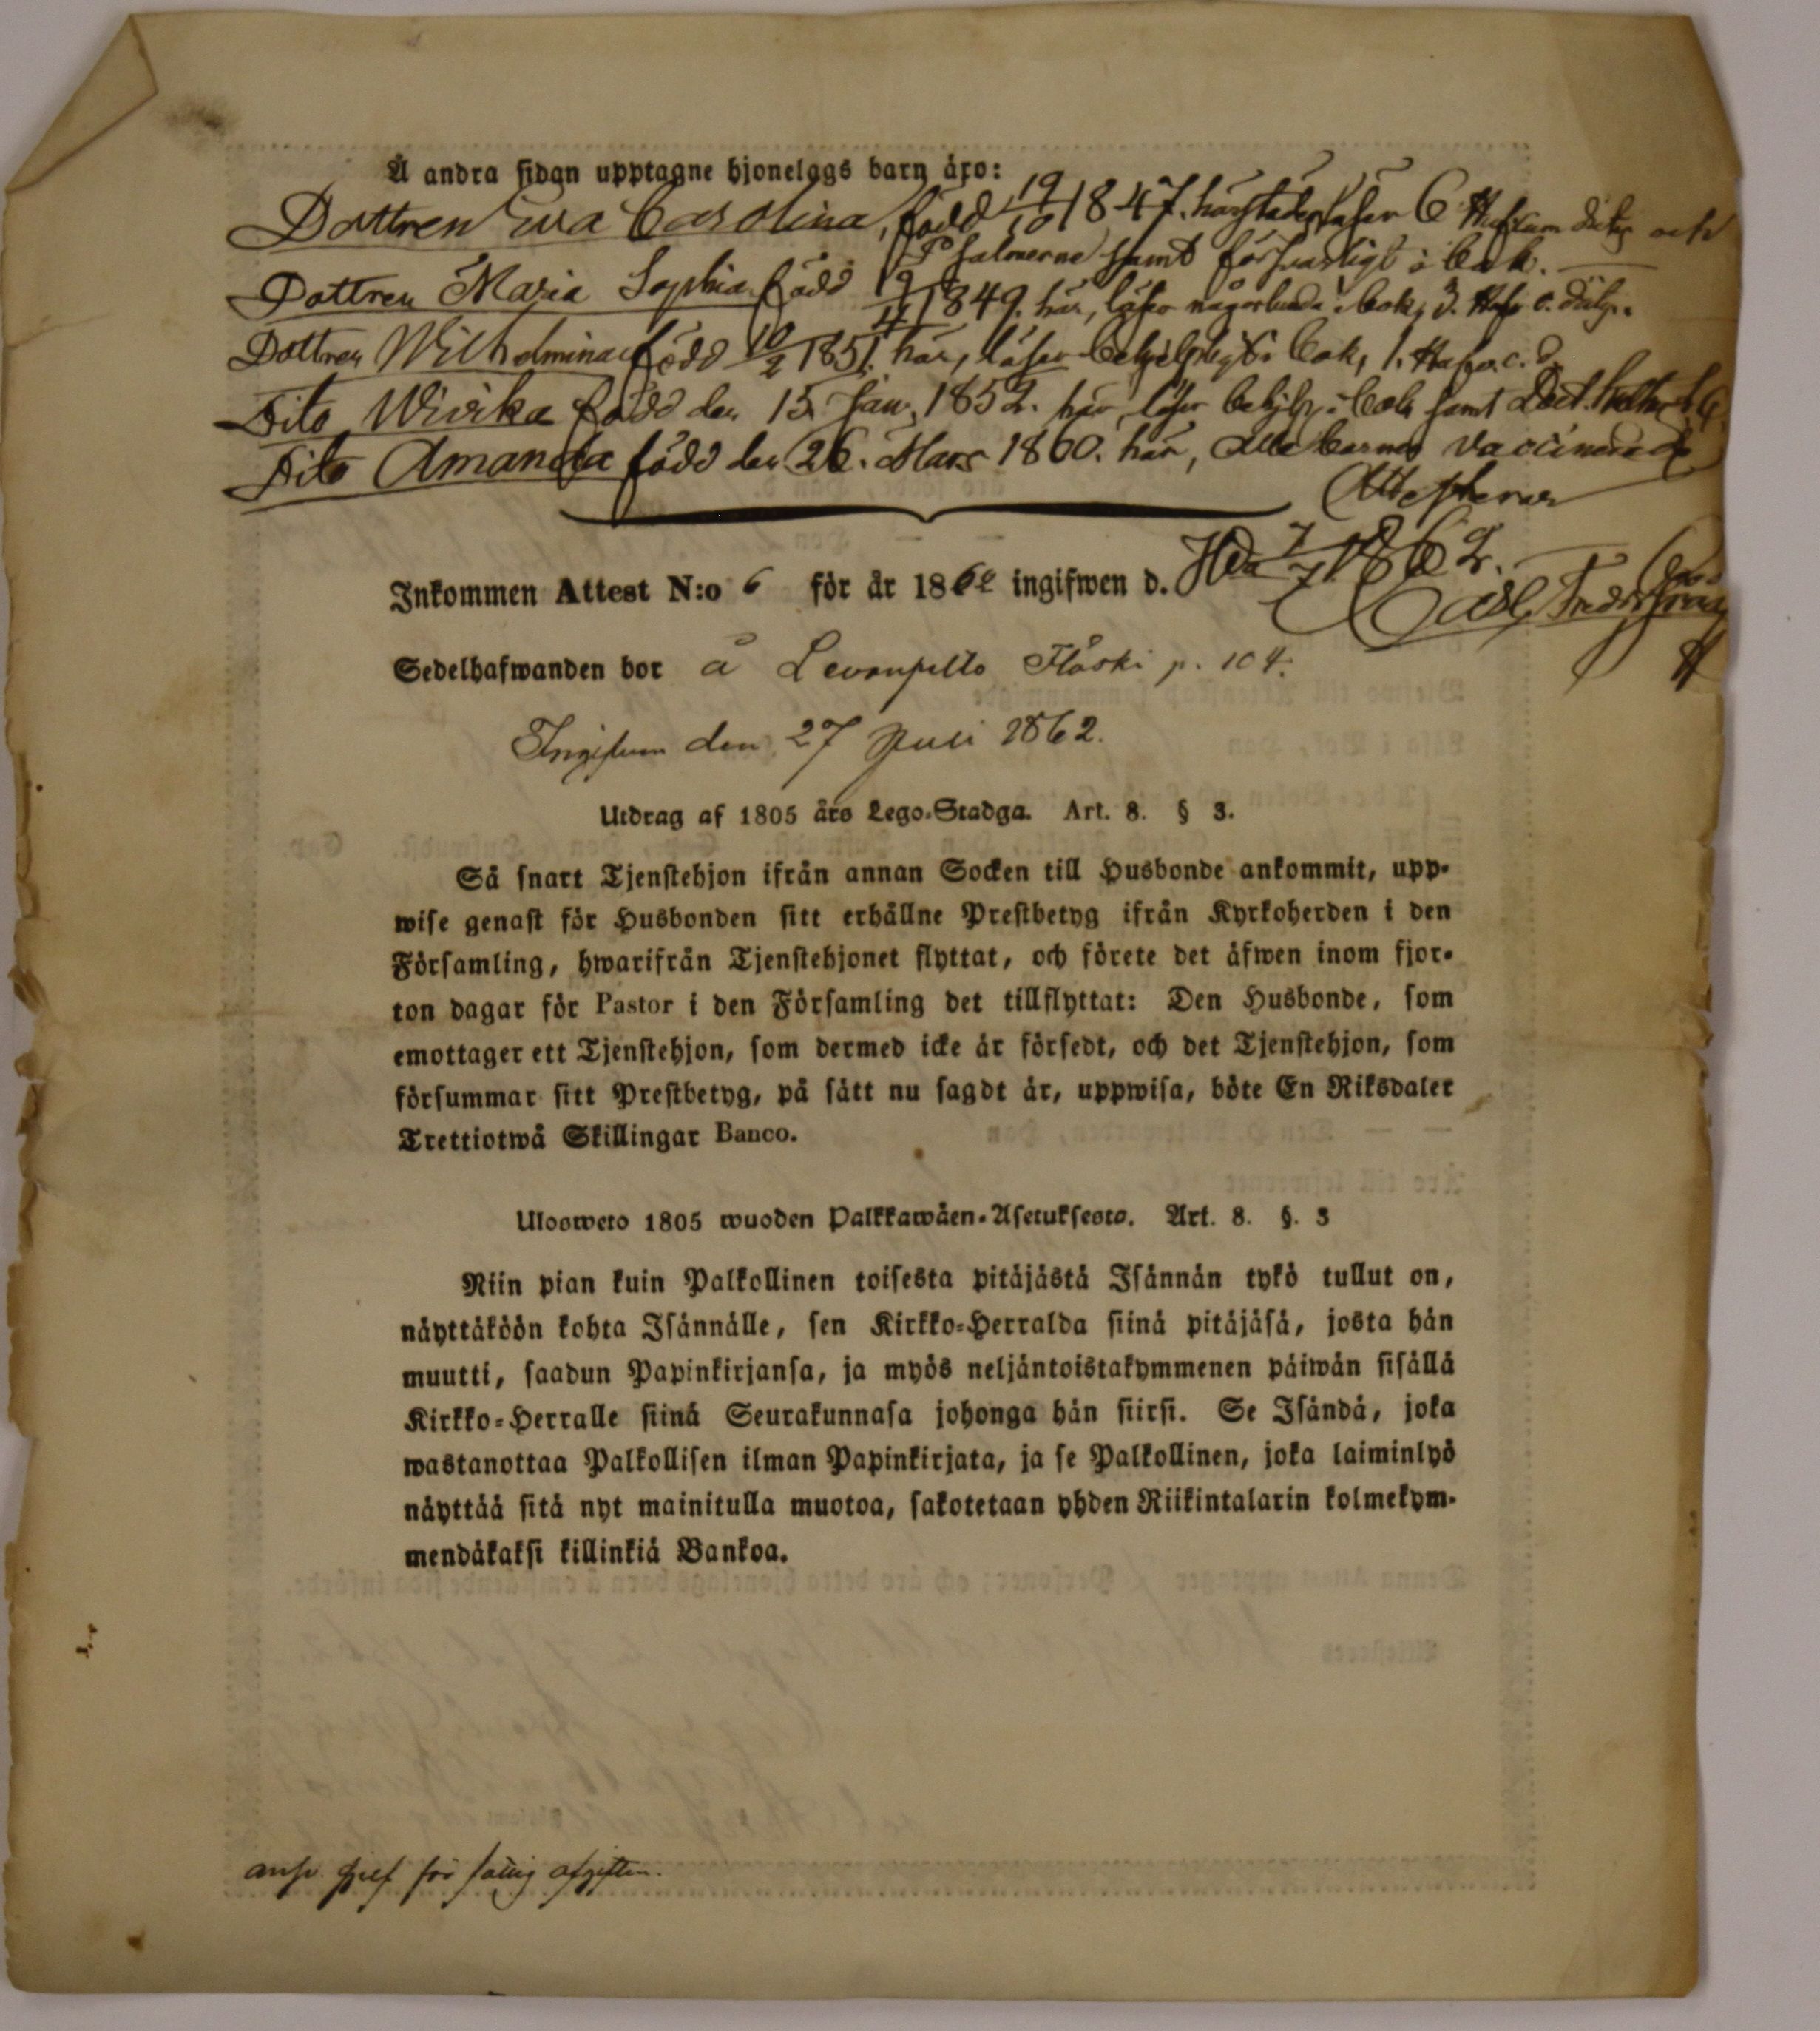 Å andra sidan upptagne hjonelags barn äro:
Dottren Eva Carolina, född 19/10 1847. härstädes, läser 6 och
Psalmerne samt försvarligt i bok.
Dottren Maria Sophia född 1849. här, läser någorlunda i bok, 3.
Dottren Wilhelmina född 10/2 1851. här, läser i bok, 1.
Dito Wivika född den 15 Jan. 1852. här läser i bok samt
Dito Amanda född den 26. Mars 1860. här, alla barnen vaccinerade
Attesterar
7/7 1862.
Carl Fredr
Inkommen Attest N:o 6 för år 1862 ingifwen d.
Sedelhafwanden bor å Levonpelto p. 104.
Ingifven den 27 Juli 1862.
Utdrag af 1805 års Lego-Stadga. Art. 8. § 3.
Så snart Tjenstehjon ifrån annan Socken till Husbonde ankommit, upp-
wise genast för Husbonden sitt erhållne Prestbetyg ifrån Kyrkoherden i den
Församling, hwarifrån Tjenstehjonet flyttat, och förete det äfwen inom fjor-
ton dagar för Pastor i den Församling det tillflyttat: Den Husbonde, som
emottager ett Tjenstehjon, som dermed icke är försedt, och det Tjenstehjon, som
försummar sitt Prestbetyg, på sätt nu sagdt är, uppwisa, böte En Riksdaler
Trettiotwå Skillingar Banco.
Ulosweto 1805 wuoden Palkkawäen-Asetuksesta. Art. 8. §. 3
Niin pian kuin Palkollinen toisesta pitäjästä Isännän tykö tullut on,
näyttäköön kohta Isännälle, sen Kirkko-Herralda siinä pitäjäsä, josta hän
muutti, saadun Papinkirjansa, ja myös neljäntoistakymmenen päiwän sisällä
Kirkko-Herralle siinä Seurakunnasa johonga hän siirsi. Se Isändä, joka
wastanottaa Palkollisen ilman Papinkirjata, ja se Palkollinen, joka laiminlyö
näyttää sitä nyt mainitulla muotoa, sakotetaan yhden Riikintalarin kolmekym-
mendäkaksi killinkiä Bankoa.
för afgiften.